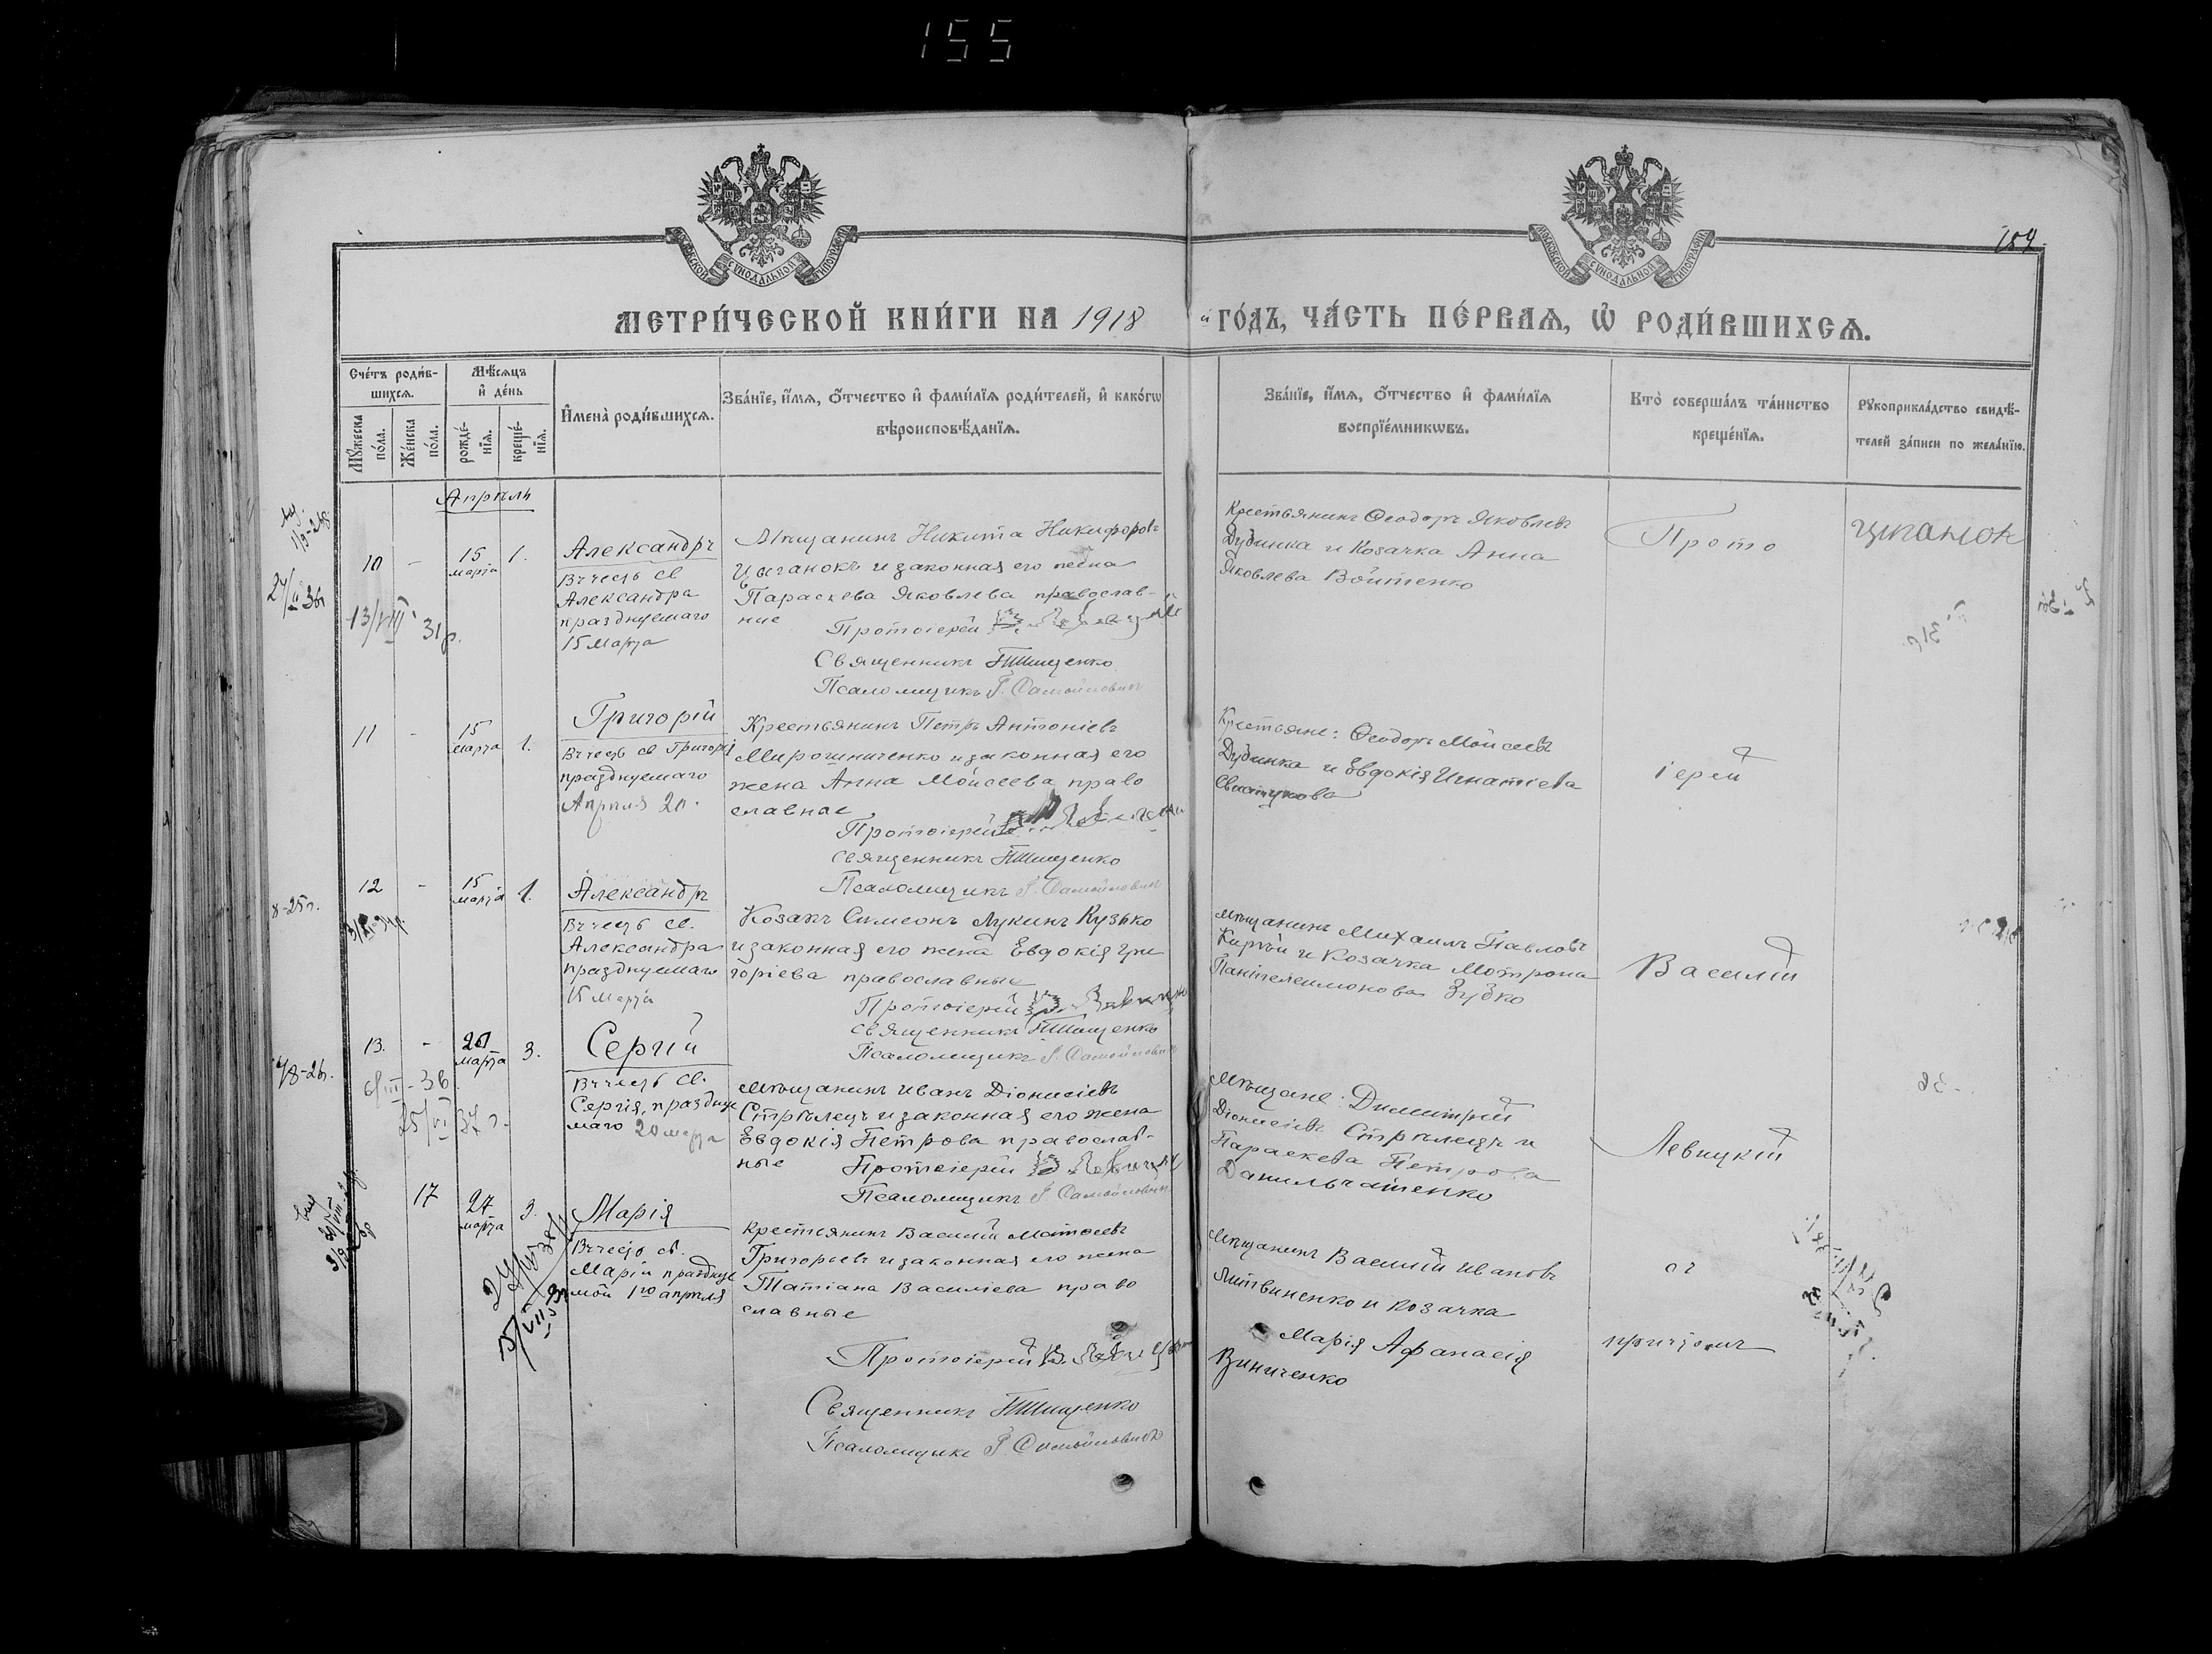 155
154
МЕТРИ́ЧЕСКОЙ КНИ́ГИ НА 1918 й ГО́ДЪ, ЧА́СТЬ ПЕ́РВАѦ, Ѿ РОДИ́ВШИХСѦ.
Счéтъ роди́в-
шихсѧ.
Мꙋ́жеска по́ла.
Же́нска по́ла.
Мѣ́сѧцъ
и҆ де́нь
рожде́-
нїѧ.
креще́-
нїѧ.
И҆мена̀ роди́вшихсѧ.
Зва́нїе, и҆́мѧ, ѻ҆́тчество и҆ фами́лїѧ роди́телей, и҆ како́гѡ
вѣроисповѣ́данїѧ.
Зва́нїе, и҆́мѧ, ѻ҆́тчество и҆ фами́лїѧ
воспрїе́мникѡвъ.
Кто̀ соверша́лъ та́инство
креще́нїѧ.
Рꙋкоприкла́дство свидѣ́-
телей за́писи по жела́нїю.
Апрѣль
10 - 15 марта 1.
Александръ
Въ честь св
Александра
празднуемаго
15 марта
Мѣщанинъ Никита Никифоровъ
Цыганокъ и законная его жена
Параскева Яковлева православ-
ные
Протоіерей
Священникъ Тищенко
Псаломщикъ Г. Самойловичъ
Крестьянинъ Ѳеодоръ Яковлевъ
Дубинка и Козачка Анна
Яковлева Войтенко
Прото
13/VIII 31 р.
11 - 15 марта 1.
Григорій
Въ честь св Григорія
празднуемаго
Апрѣля 20.
Крестьянинъ Петръ Антоніевъ
Мирошниченко и законная его
жена Анна Мойсеева право
славные
Протоіерей
Священникъ Тищенко
Псаломщикъ Г. Самойловичъ
Крестьяне: Ѳеодоръ Мойсеевъ
Дубинка и Евдокія Игнатіева
іерей
12 - 15 марта 1.
Александръ
Въ честь св.
Александра
празднуемаго
15 марта
Козакъ Симеонъ Лукинъ Кузько
и законная его жена Евдокія Гри
горіева православные
Протоіерей
Священникъ Тищенко
Псаломщикъ Г. Самойловичъ
Мѣщанинъ Михаилъ Павловъ
Кирѣй и Козачка Мотрона
Пантелеимонова Зубко
Василій
8-25г.
13. - марта 3.
Сергій
Въ честь св.
Сергія, праздnуе
маго 20 марта
Мѣщанинъ Иванъ Діонисіевъ
Стрѣлецъ и законная его жена
Евдокія Петрова православ-
ные
Протоіерей
Псаломщикъ Г. Самойловичъ
Мѣщане: Димитрій
Діонисіевъ Стрѣлецъ и
Параскева Петрова
Данильчатенко
Левицкій
25/VI 37 г.
17 27 марта 3.
Марія
Въ честь св.
Маріи праздnуе
мой 1го апрѣля
Крестьянинъ Василій Матѳеевъ
Григорьевъ и законная его жена
Татіана Василіева право
славные
Протоіерей
Священникъ Тищенко
Псаломщикъ Г. Самойловичъ
Мѣщанинъ Василій Ивановъ
Литвиненко и Козачка
Марія Афанасія
Винниченко
съ
причтомъ